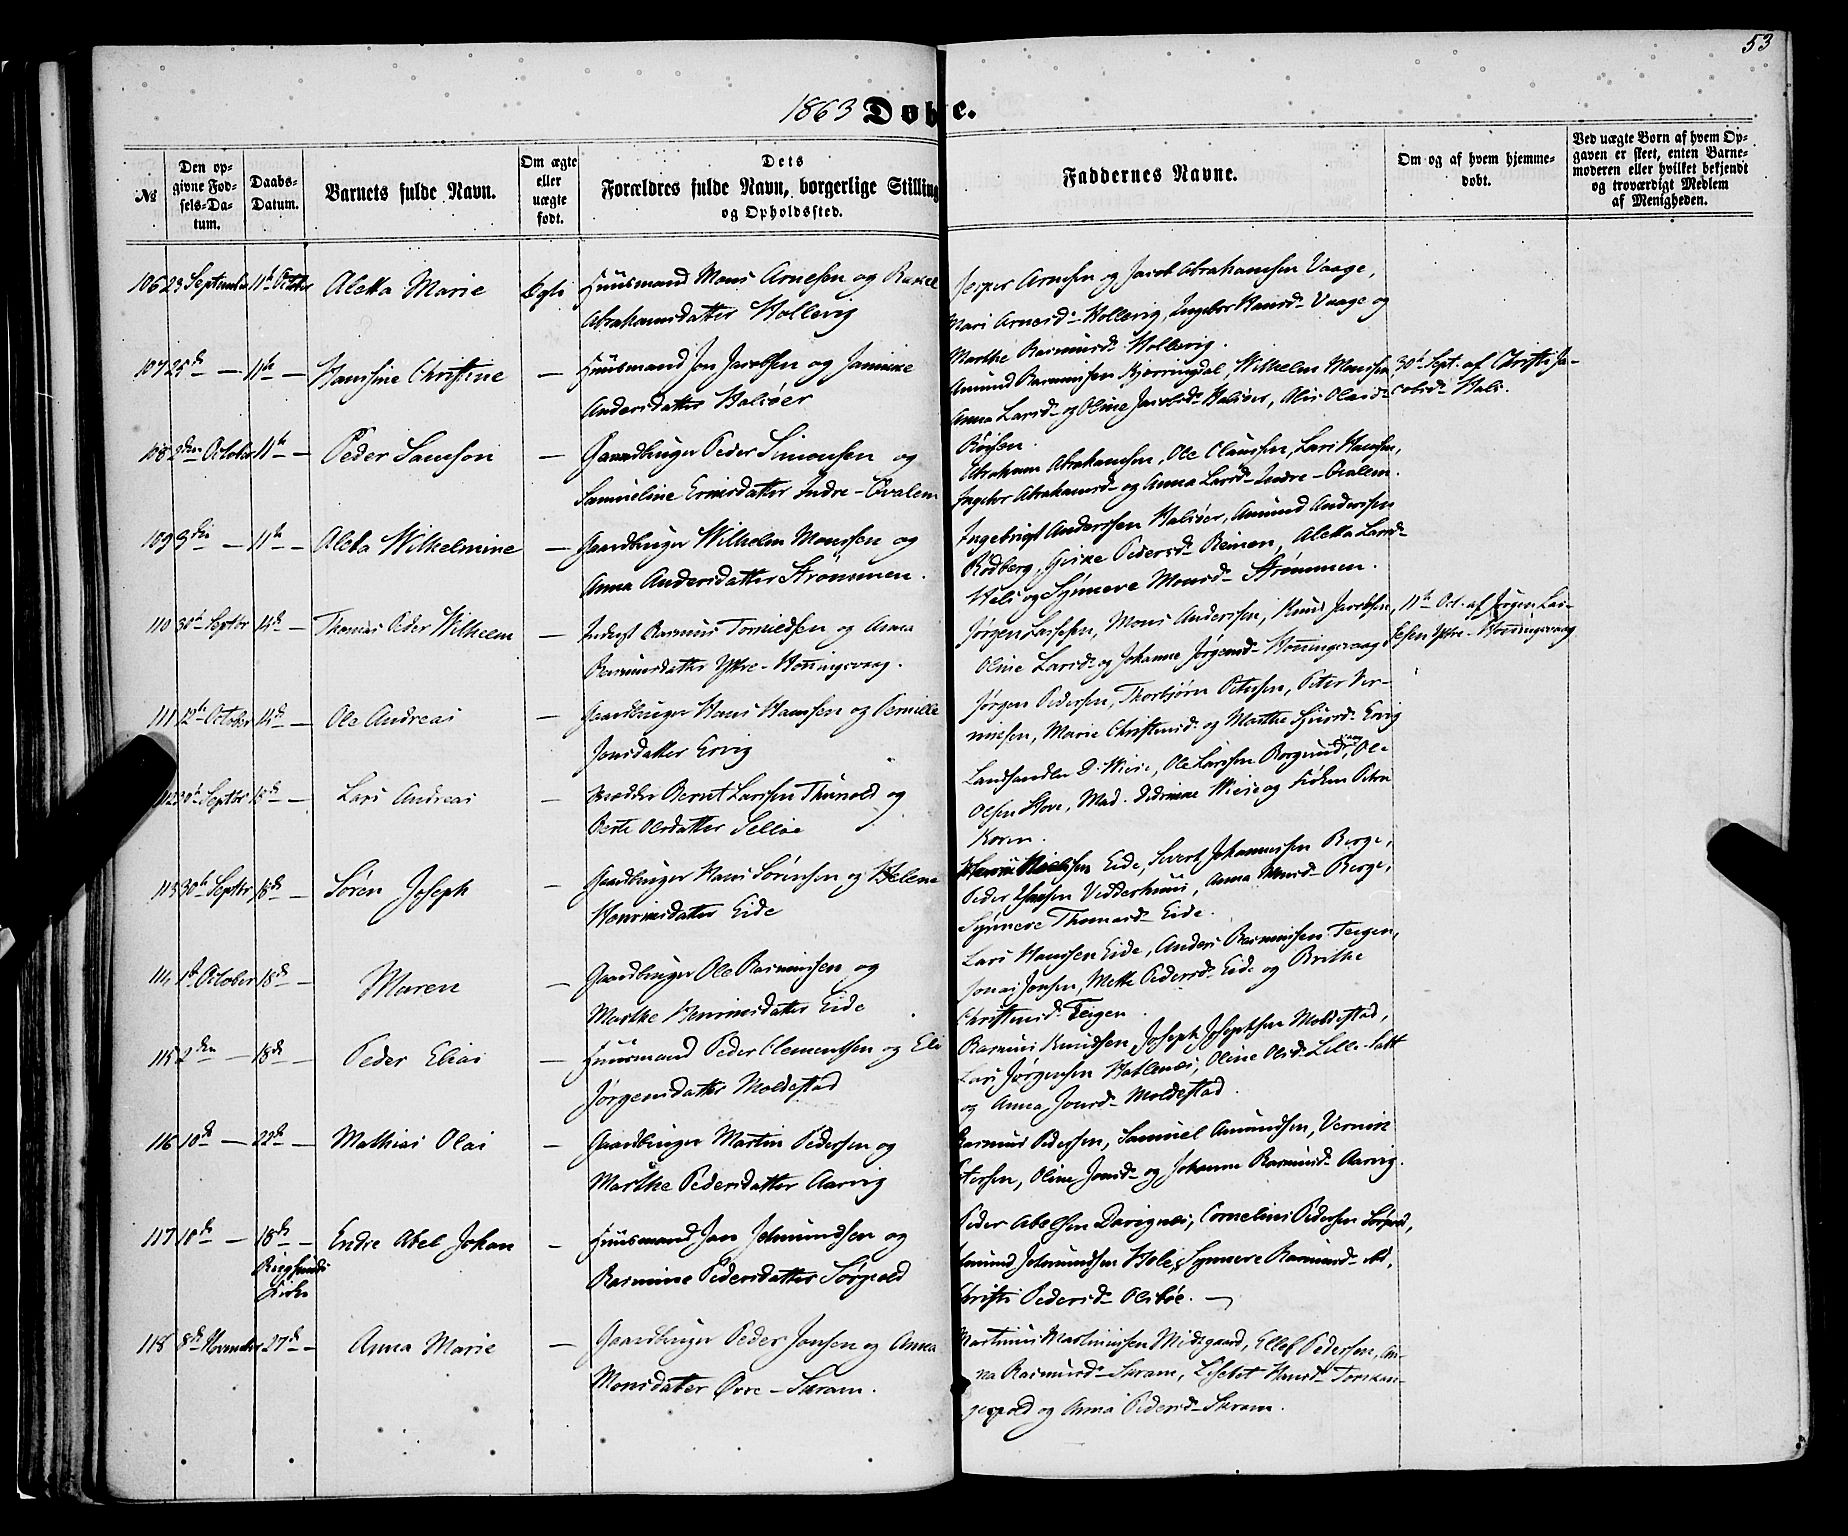 53
1863 Døbte.
№
Den op-
givne Fød-
sels-Da-
tum.
Daabs-
Datum.
Barnets fulde Navn.
Om ægte
eller
uægte
født.
Dets
Forældres fulde Navn, borgerlige Stilling
og Opholdssted.
Faddernes Navne.
Om og af hvem hjemme-
døbt.
Ved uægte Børn af hvem Op-
gaven er skeet, enten Barne-
moderen eller hvilket bekjendt
og troværdigt Medlem
af Menigheden.
106 23 September 11te October Aletta Marie Ægte Huusmand Mons Arnesen og Rakel
Abrahamsdatter Hollevig
Jesper Arnesen og Jacob Abrahamsen Vaage,
Mari Arnesd- Hollevig, Ingebor Hansd- Vaage og
Marthe Rasmusd- Hollevig.
107 25de — 11te — Hansine Christine — Huusmand Jon Jacobsen og Jannike
Andersdatter Halsøer
Amund Rasmussen Kjerringdal, Wilhelm Monssen
Anna Larsd- og Oline Jacobsd- Halsøer, Alis Olaisd-
30te Sept. af Christi Ja-
cobsd- Hals.
108 2den October 11te — Peder Samson — Gaardbruger Peder Simonsen og
Samueline Ernsdatter Indre-Qvalem
Abraham Abrahamsen, Ole Claussen, Lars Hanssen,
Ingebor Abrahamsd- og Anna Larsd- Indre-Qvalem.
109 3die — 11te — Aletta Wilhelmine — Gaardbruger Wilhelm Monssen og
Anna Andersdatter Strømmen.
Ingebrigt Anderssen Halsøer, Amund Anderssen
Rødberg, Pedersd- Reinen, Aletta Larsd-
Hals og Synneve Monsd- Strømmen.
110 30te Septbr 14de — Thomas Peder Wilhelm — Inderst Rasmus Tomiedsen og Anna
Rasmusdatter Ytre-Honingsvaag.
Jørgen Lassesen, Mons Anderssen, Knud Jacobsen,
Oline Larsd- og Johanne Jørgensd- Honingsvaag
11te Oct. af Jørgen Las-
sesen Ytre-Honingsvaag
111 12te October 14de — Ole Andreas — Gaardbruger Hans Hanssen og Pernille
Jonsdatter Ervig
Jørgen Pederssen, Thorbjørn Petersen, Peter Ver-
nissen, Marie Christensd- og Marthe Sjursd- Ervig
112 30te Septbr 15de — Lars Andreas — Bernt Larssen Thunold og
Berte Olsdatter Selløe
Landhandler D. Wiese, Ole Larssen Borgund, Ole
Olsen Stove, Mad. Didrikke Wiese og Frøken Petra
Koren.
113 30te Septbr 18de — Søren Joseph — Gaardbruger Hans Sørensen og Helene
Henriksdatter Eide
Eide, Sivert Johannessen Berge,
Peder Hansen Vedderhuus, Anna Knudsd- Berge,
Synneve Thomasd- Eide.
114 1te October 18de — Maren — Gaardbruger Ole Rasmussen og
Marthe Henriksdatter Eide
Lars Hanssen Eide, Anders Rasmussen Teigen,
Jonas Jonsen, Mette Pedersd- Eide og Brithe
Christensd- Teigen.
115 2den — 18de — Peder Elias — Huusmand Peder Clementsen og Eli
Jørgensdatter Moldestad
Rasmus Knudssen, Joseph Josephsen Moldestad,
Lars Jørgensen Hatlenæs, Oline Olsd- Lille-Satt
og Anna Jonsd- Moldestad.
116 10de — 22de — Mathias Olai — Gaardbruger Martin Pedersen og
Marthe Pedersdatter Aarvig
Rasmus Pederssen, Samuel Amundsen, Vernike
Peterssen, Oline Jonsd- og Johanne Rasmusd- Aarvig.
117 10de — 18de — Endre Abel Johan — Huusmand Jon Jetmundsen og
Rasmine Pedersdatter Sørpold
Kirke
Peder Abelsen Davignæs, Cornelius Pedersen Sørpold,
Jetmundsen Hole, Synneve Rasmusd-
Christi Pedersd- Osbøe. —
118 8de November 27de — Anna Marie — Gaardbruger Peder Jonsen og Anna
Monsdatter Øvre-Skram.
Martinus Martinussen Midtgaard, Ellef Pederssen, An-
na Rasmusd- Skram, Lisebet Hansd- Torskan-
gerpold og Anna Pedersd- Skram.